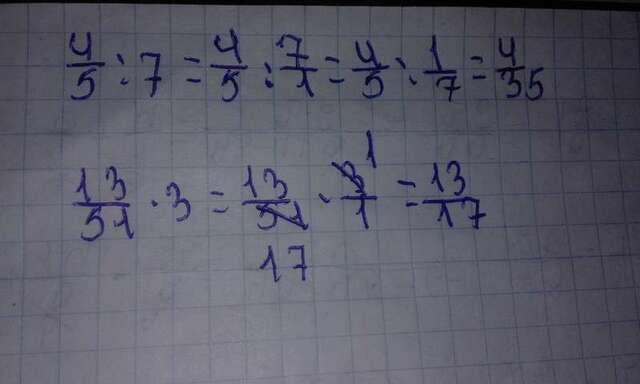 4/5 : 7 = 4/5 : 7/1 = 4/5 : 1/7 = 4/35
13/51 · 3 = 13/51 · 3/1 = 13/17
1
17